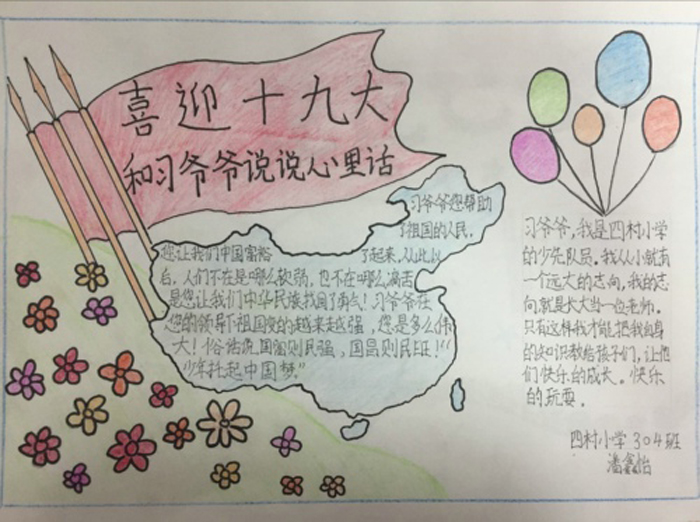 喜迎十九大
和习爷爷说说心里话
习爷爷您帮助
了祖国的人民,
您让我们中国富裕了起来,从此以
后,人们不在是哪么软弱,也不在哪么痛苦
是您让我们中华民族找回了勇气!习爷爷在
您的领导下祖国变的越来越强,您是多么伟
大!俗话说国富则民强,国昌则民旺!"
"少年托起中国梦。"
习爷爷,我是四村小学
的少先队员。我从小就有
一个远大的志向,我的志
向就是长大当一位老师。
只有这样我才能把我自身
的知识教给孩子们,让他
们快乐的成长。快乐
的玩耍。
四村小学304班
潘鑫怡